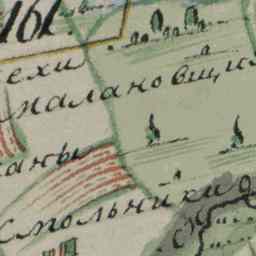 161.
ехи
малановщи
аны
Смольники